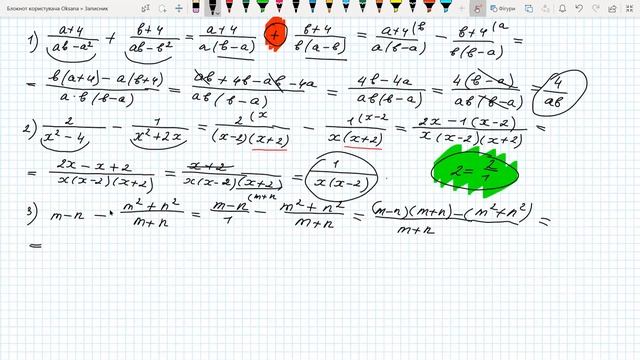 Блокнот користувача Oksana » Записник
Фігури
1) \frac{a+4}{ab-a²} + \frac{b+4}{ab-b²} = \frac{a+4}{a(b-a)} + \frac{b+4}{b(a-b)} = \frac{a+4}{a(b-a)} (b - \frac{b+4}{b(b-a)} (a =
= \frac{b(a+4)-a(b+4)}{a·b(b-a)} = \frac{ab+4b-ab-4a}{ab(b-a)} = \frac{4b-4a}{ab(b-a)} = \frac{4(b-a)}{ab(b-a)} = \frac{4}{ab}
2) \frac{2}{x²-4} - \frac{1}{x²+2x} = \frac{2}{(x-2)(x+2)} (x - \frac{1}{x(x+2)} (x-2 = \frac{2x-1(x-2)}{x(x-2)(x+2)} =
= \frac{2x-x+2}{x(x-2)(x+2)} = \frac{x+2}{x(x-2)(x+2)} = \frac{1}{x(x-2)} . 2 = \frac{2}{1}
(m+n
3) m-n - \frac{m²+n²}{m+n} = \frac{m-n}{1} - \frac{m²+n²}{m+n} = \frac{(m-n)(m+n)-(m²+n²)}{m+n} =
=